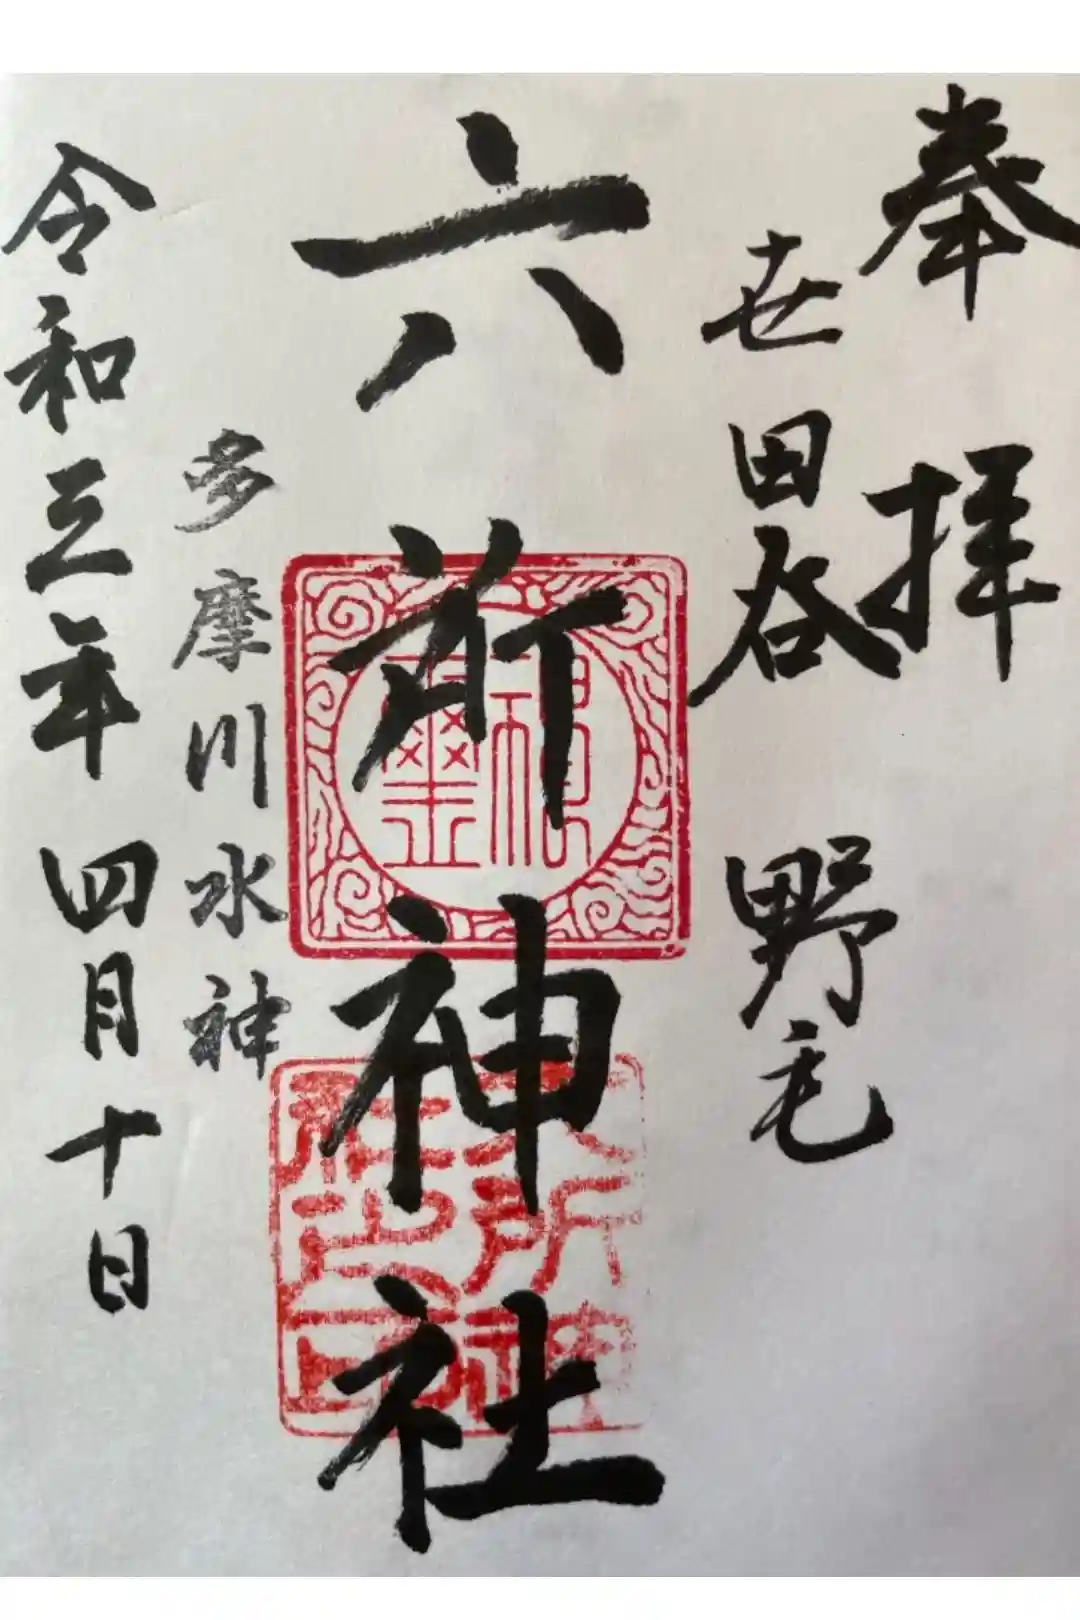 奉拝
世田谷 野毛
六所神社
神璽
六所神
社之印
多摩川水神
令和三年 四月十日